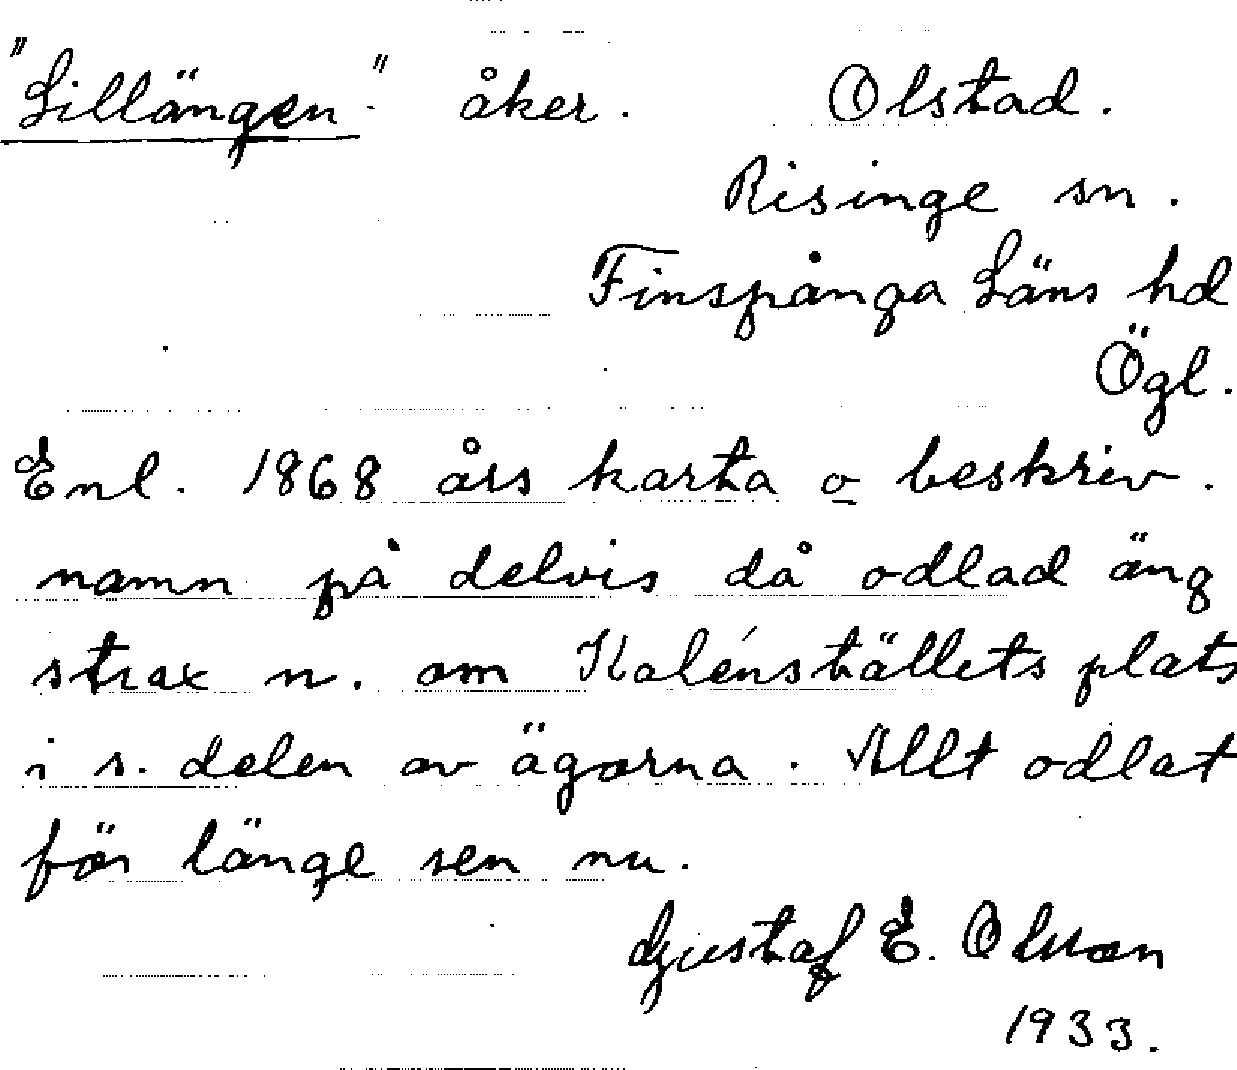 "Lillängen." åker. Olstad.
Risinge sn.
Finspånga Läns hd
Ögl.
Enl. 1868 års karta o beskriv.
namn på delvis då odlad äng
strax n. om Kalénställets plats
i s. delen av ägorna. Allt odlat
för länge sen nu.
Gustaf E. Olsson
1933.